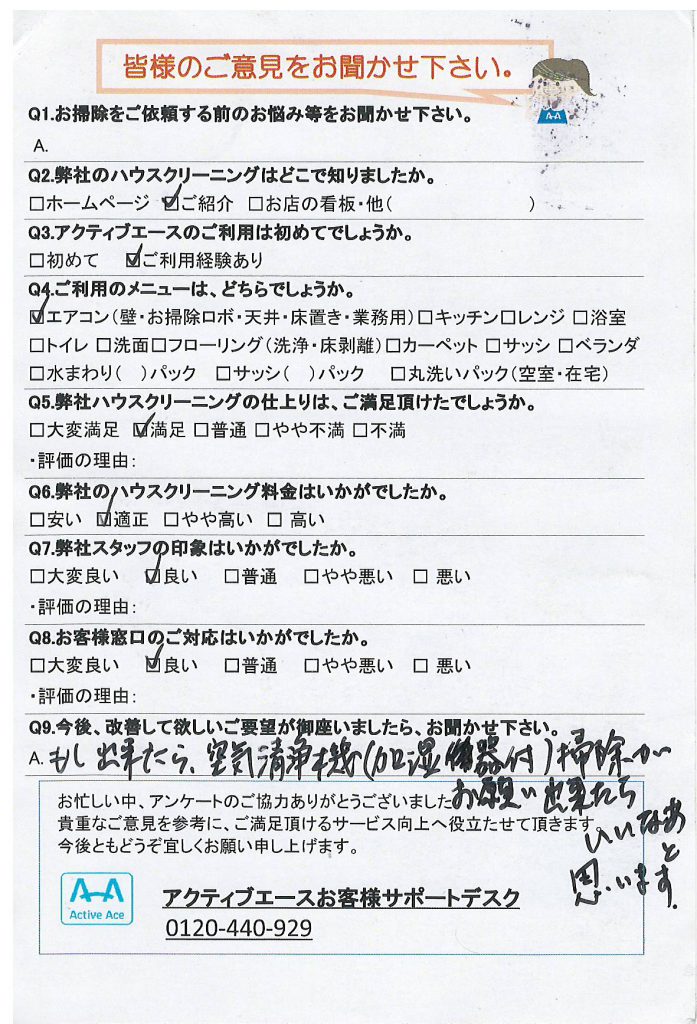 皆様のご意見をお聞かせ下さい。
A-A
Q1.お掃除をご依頼する前のお悩み等をお聞かせ下さい。
A.
Q2.弊社のハウスクリーニングはどこで知りましたか。
□ホームページ ☑ご紹介 □お店の看板・他( )
Q3.アクティブエースのご利用は初めてでしょうか。
□初めて ☑ご利用経験あり
Q4.ご利用のメニューは、どちらでしょうか。
☑エアコン(壁・お掃除ロボ・天井・床置き・業務用)□キッチン□レンジ □浴室
□トイレ □洗面□フローリング(洗浄・床剥離)□カーペット □サッシ □ベランダ
□水まわり( )パック □サッシ( )パック □丸洗いパック(空室・在宅)
Q5.弊社ハウスクリーニングの仕上りは、ご満足頂けたでしょうか。
□大変満足 ☑満足 □普通 □やや不満 □不満
・評価の理由:
Q6.弊社のハウスクリーニング料金はいかがでしたか。
□安い ☑適正 □やや高い □ 高い
Q7.弊社スタッフの印象はいかがでしたか。
□大変良い ☑良い □普通 □やや悪い □ 悪い
・評価の理由:
Q8.お客様窓口のご対応はいかがでしたか。
□大変良い ☑良い □普通 □やや悪い □ 悪い
・評価の理由:
Q9.今後、改善して欲しいご要望が御座いましたら、お聞かせ下さい。
A.もし出来たら、空気清浄機(加湿機器付)掃除が
お願い出来たら
いいなあ
と
思います。
お忙しい中、アンケートのご協力ありがとうございました
貴重なご意見を参考に、ご満足頂けるサービス向上へ役立たせて頂きます。
今後ともどうぞ宜しくお願い申し上げます。
A-A
Active Ace
アクティブエースお客様サポートデスク
0120-440-929